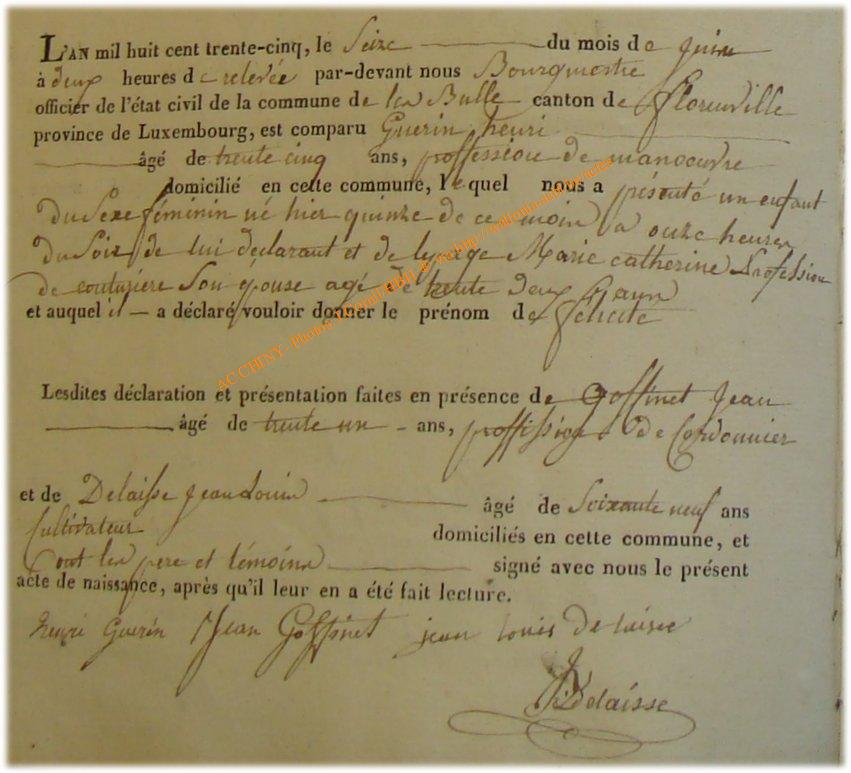 L'AN mil huit cent trente-cinq, le Seize du mois de Juin
à deux heures de relevée par-devant nous Bourgmestre
officier de l'état civil de la commune de la Bulle canton de florenville
province de Luxembourg, est comparu Guerin henri
âgé de trente cinq ans, proffession de manoeuvre
domicilié en cette commune, lequel nous a présenté un enfant
du Sexe féminin né hier quinze de ce mois a onze heures
du Soir de lui déclarant et de Marie catherine Profession
de couturière Son épouse agé de trente deux ans
et auquel il a déclaré vouloir donner le prénom de félicité
Lesdites déclaration et présentation faites en présence de Goffinet Jean
âgé de trente un ans, proffission de Cordonnier
et de Delaisse Jean Louis âgé de Soixante neuf ans
Cultivateur domiciliés en cette commune, et
ont les pere et témoins signé avec nous le présent
acte de naissance, après qu'il leur en a été fait lecture.
henri Guerin Jean Goffinet jean louis delaisse
Delaisse
AC CHINY - Photos